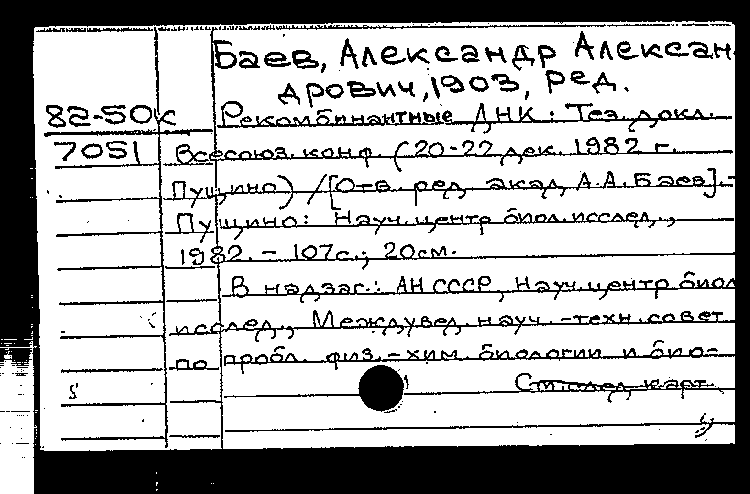 Баев, Александр Алексан-
дрович, 1903, ред.
82-50к Рекомбинантные ДНК : Тез. докл.
7051 Всесоюз. конф. (20-22 дек. 1982 г.
Пущино) / [Отв. ред. акад. А.А. Баев]. -
Пущино: Науч. центр биол. исслед.,
1982. - 107с.; 20см.
В надзаг.: АН СССР, Науч. центр биол
исслед., Междувед. науч. -техн. совет
по пробл. физ. -хим. биологии и био-
См. след. карт.